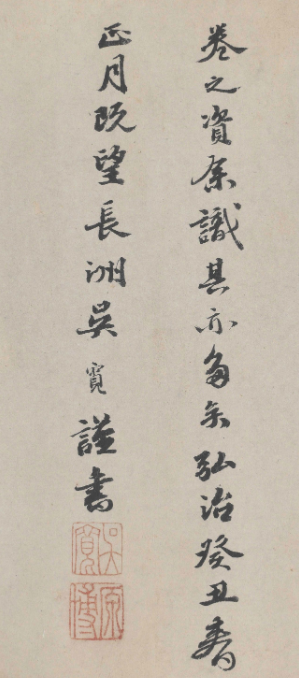 卷之資余識其亦多矣弘治癸丑春
正月既望長洲吳寬謹書
吳寬
原博